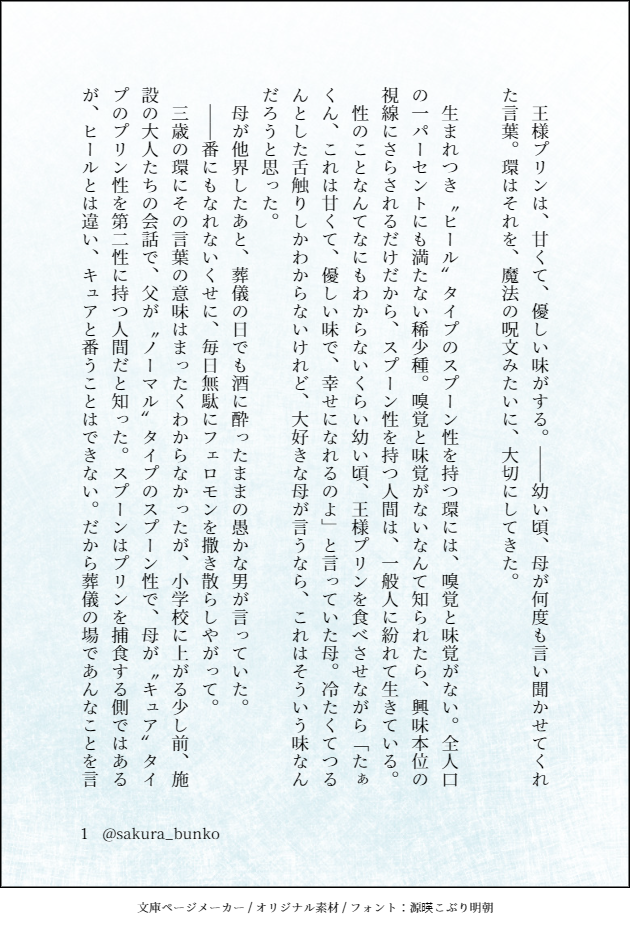 王様プリンは、甘くて、優しい味がする。――幼い頃、母が何度も言い聞かせてくれ
た言葉。環はそれを、魔法の呪文みたいに、大切にしてきた。
　生まれつき〝ヒール〟タイプのスプーン性を持つ環には、嗅覚と味覚がない。全人口
の一パーセントにも満たない稀少種。嗅覚と味覚がないなんて知られたら、興味本位の
視線にさらされるだけだから、スプーン性を持つ人間は、一般人に紛れて生きている。
　性のことなんてなにもわからないくらい幼い頃、王様プリンを食べさせながら「たぁ
くん、これは甘くて、優しい味で、幸せになれるのよ」と言っていた母。冷たくてつる
んとした舌触りしかわからないけれど、大好きな母が言うなら、これはそういう味なん
だろうと思った。
　母が他界したあと、葬儀の日でも酒に酔ったままの愚かな男が言っていた。
　――番にもなれないくせに、毎日無駄にフェロモンを撒き散らしやがって。
　三歳の環にその言葉の意味はまったくわからなかったが、小学校に上がる少し前、施
設の大人たちの会話で、父が〝ノーマル〟タイプのスプーン性で、母が〝キュア〟タイ
プのプリン性を第二性に持つ人間だと知った。スプーンはプリンを捕食する側ではある
が、ヒールとは違い、キュアと番うことはできない。だから葬儀の場であんなことを言
1　@sakura_bunko
文庫ページメーカー / オリジナル素材 / フォント：源暎こぶり明朝